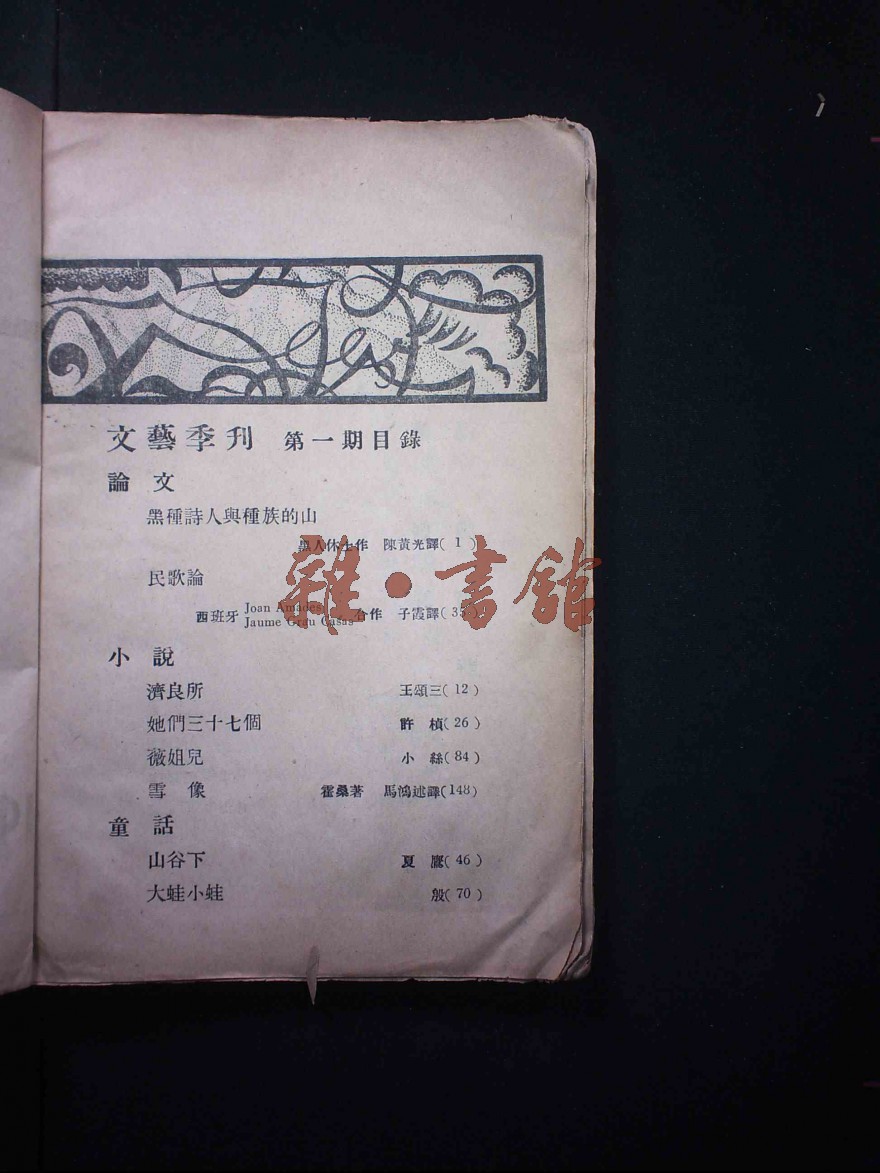 文藝季刊 第一期目錄
論文
黑種詩人與種族的山
黑人休士作 陳黃光譯( 1 )
民歌論
西班牙 Joan Amades Jaume Grau Casas 合作 子霞譯( 35
小說
濟良所 王頌三( 12 )
她們三十七個 許楨( 26 )
薇姐兒 小絲( 84 )
雪像 霍桑著 馬鴻述譯(148)
童話
山谷下 夏鷹( 46 )
大蛙小蛙 殷( 70 )
雜·書館